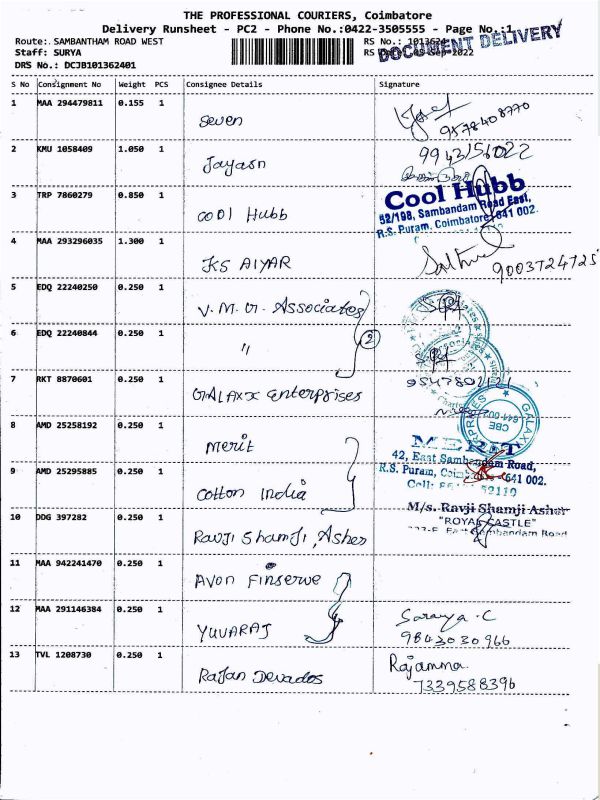 THE PROFESSIONAL COURIERS, Coimbatore
Delivery Runsheet - PC2 - Phone No.:0422-3505555 - Page No.:1
DOCUMENT DELIVERY
Route: SAMBANTHAM ROAD WEST RS No.: 1013624
Staff: SURYA RS -Sep-2022
DRS No.: DCJB101362401
S No Consignment No Weight PCS Consignee Details Signature
1 MAA 294479811 0.155 1 seven
9578408770
2 KMU 1058409 1.050 1 Jayasn 9943156022
3 TRP 7860279 0.850 1 COOl Hubb
Cool Hubb
52/198, Sambandam Road East,
R.S. Puram, Coimbatore-641 002.
4 MAA 293296035 1.300 1 JKS AIYAR
9003724725
5 EDQ 22240250 0.250 1 V.M.G. Associates
6 EDQ 22240844 0.250 1 " 2
7 RKT 8870601 0.250 1 GALAXX Enterprises
GALAXY
CBE
641-002
8 AMD 25258192 0.250 1 Merit
MERIT
42, East Sambandam Road,
R.S. Puram, 641 002.
Cell: 52110
9 AMD 25295885 0.250 1 Cotton India
10 DDG 397282 0.250 1 Ravji Shamji, Asher
M/s. Ravji Shamji Asher
"ROYAL CASTLE"
Sambandam Road
11 MAA 942241470 0.250 1 Avon Finserve
12 MAA 291146384 0.250 1 YUVARAJ Saranya.C
9843030966
13 TVL 1208730 0.250 1 Rajan Devados Rajamma
7339588396